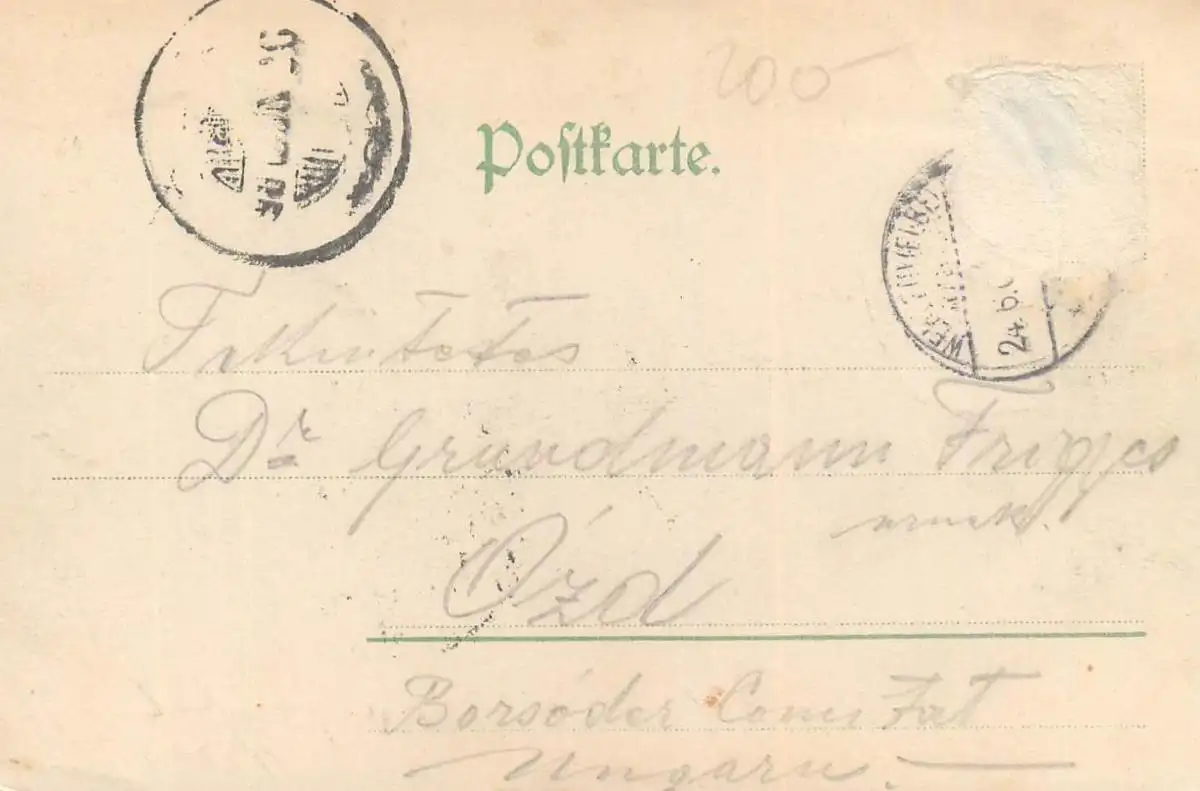 200
Postkarte.
24. 6.
Tekintetes
Dr Grundmann Frigyes
urnak.
Ózd
Borsóder Comitat
Ungarn.